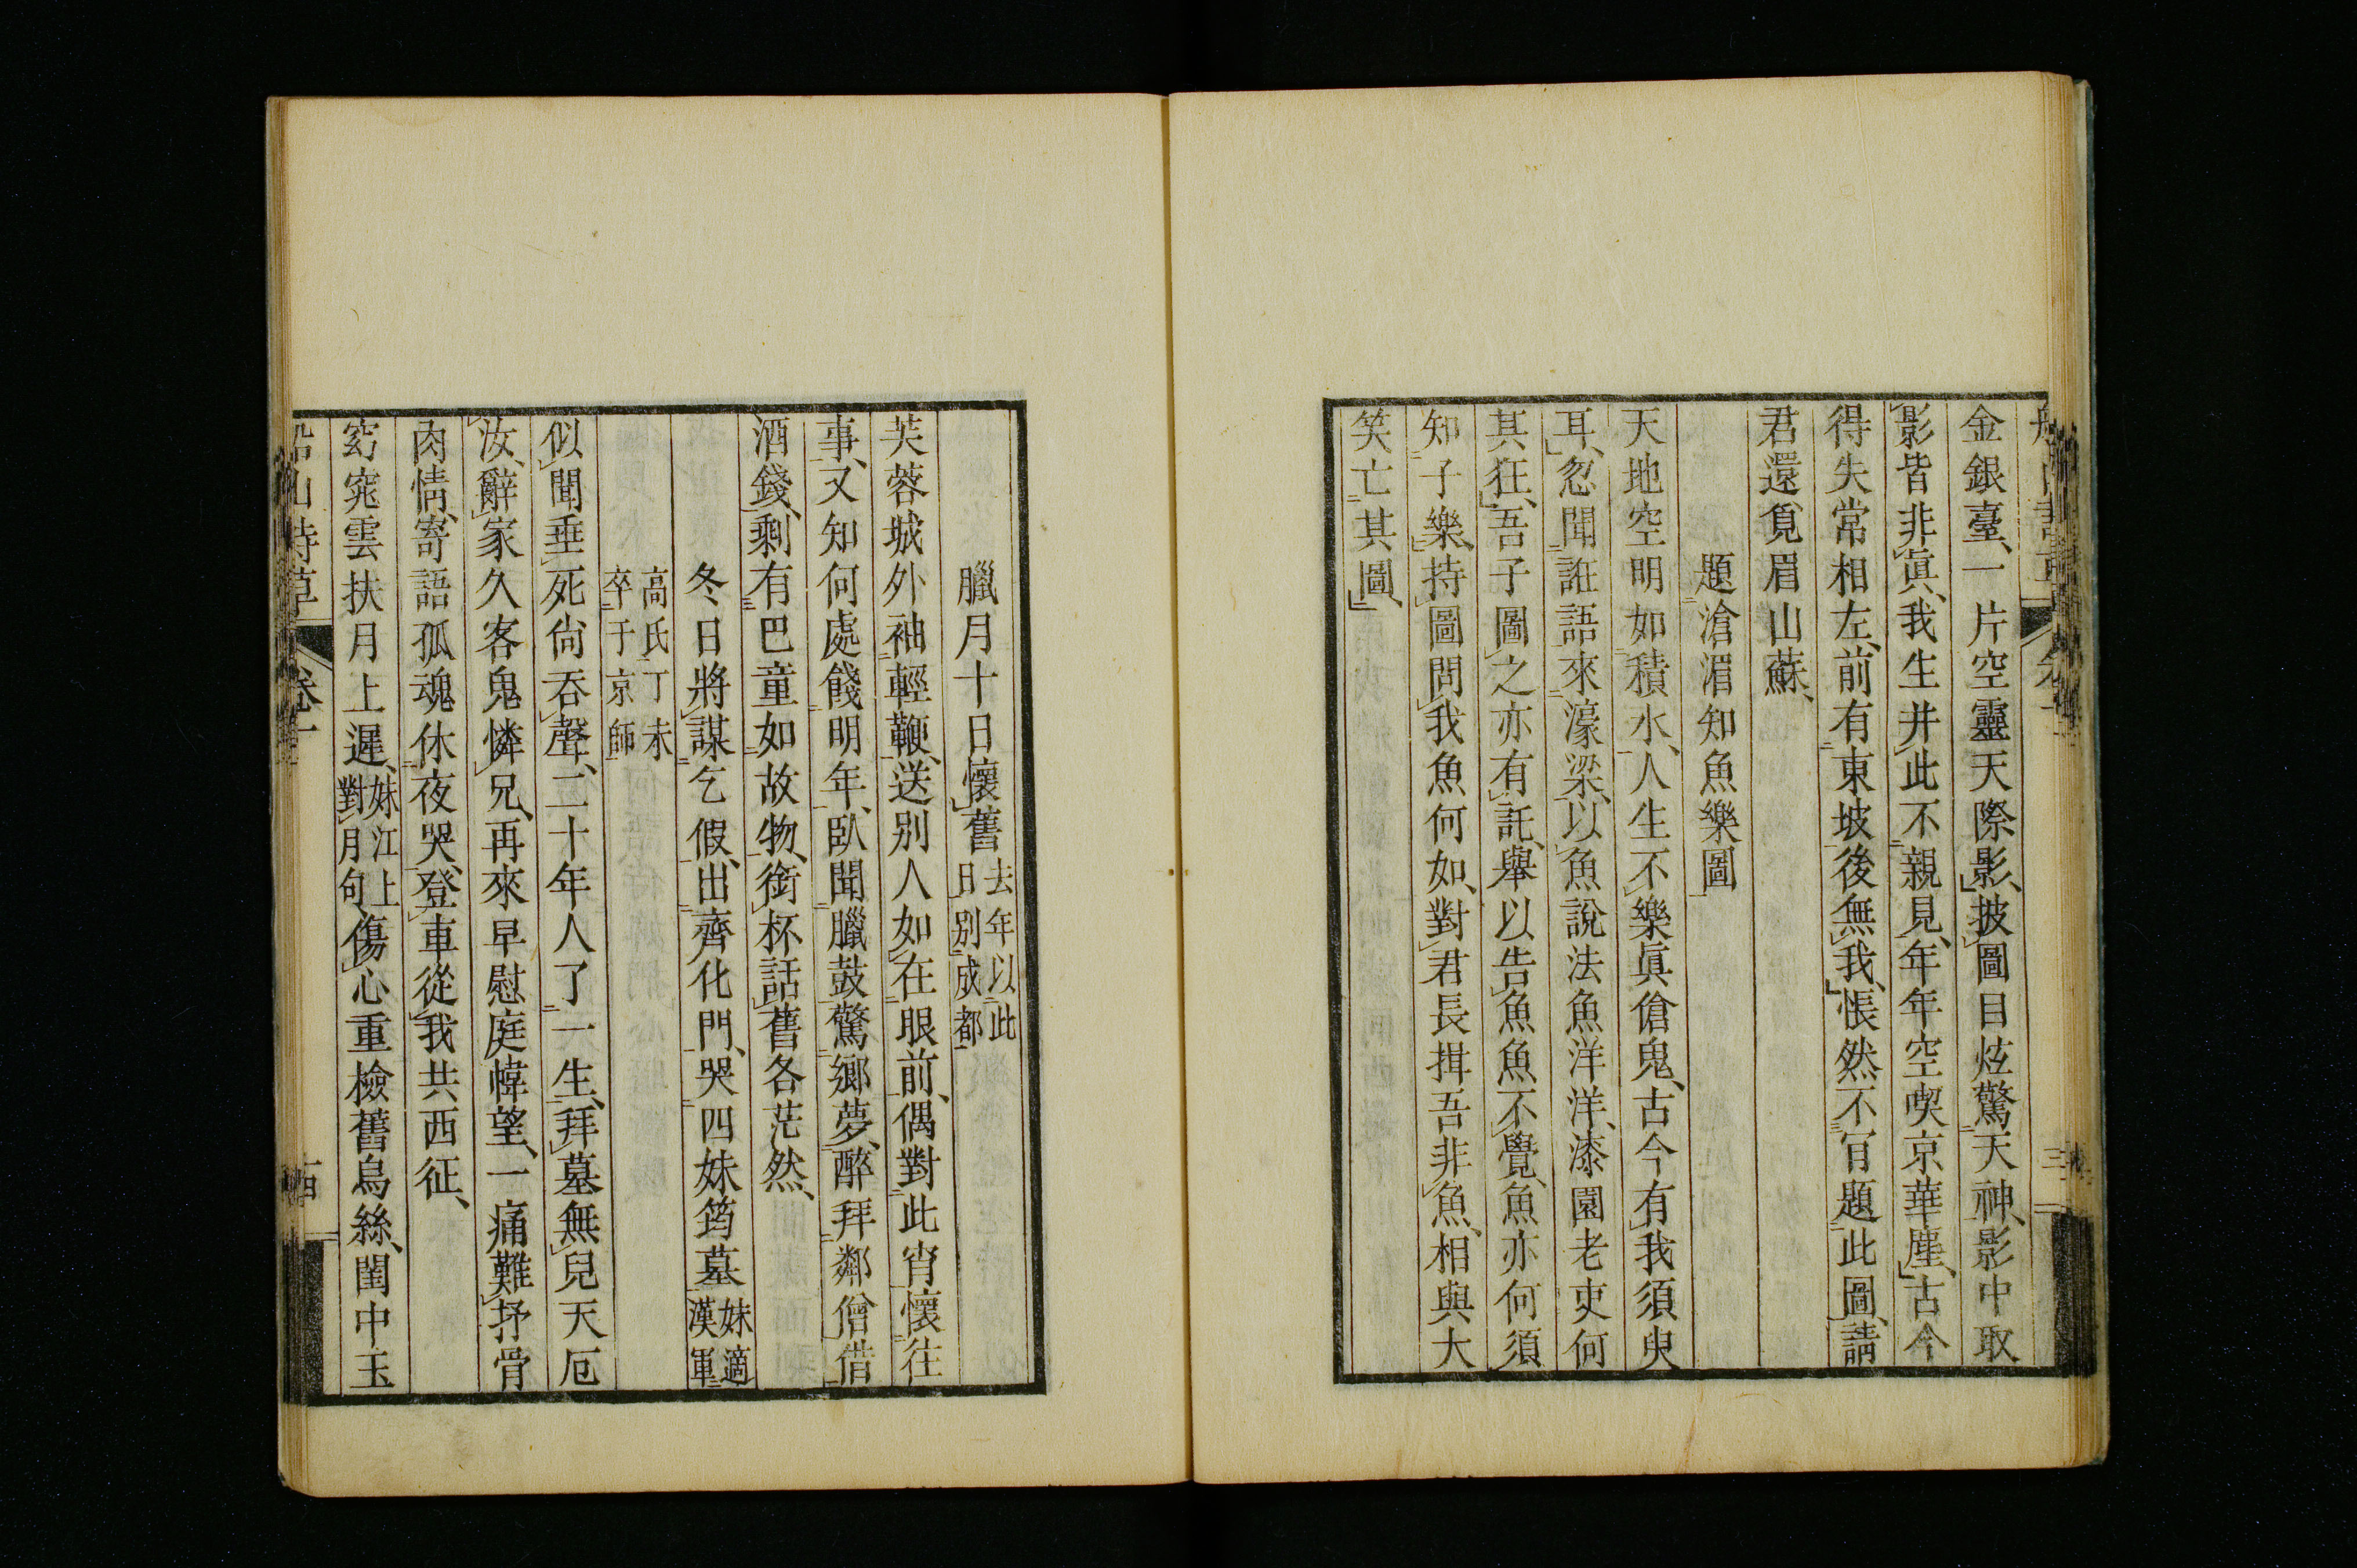 金銀臺、一片空靈天際影、披圖目炫驚天神、影中取
影皆非眞、我生并此不親見、年年空喫京華塵、古今
得失常相左、前有東坡後無我、悵然不肎題此圖、請
君還覓眉山蘇、
題滄湄知魚樂圖
天地空明如積水、人生不樂眞傖鬼、古今有我須臾
耳、忽聞誑語來濠梁、以魚說法魚洋洋、漆園老吏何
其狂、吾子圖之亦有託、舉以告魚魚不覺、魚亦何須
知子樂、持圖問我魚何如、對君長揖吾非魚、相與大
笑亡其圖、
臘月十日懷舊去年以此日別成都
芙蓉城外袖輕鞭、送別人如在眼前、偶對此宵懷往
事、又知何處餞明年、臥聞臘鼓驚鄉夢、醉拜鄰僧借
酒錢、剩有巴童如故物、銜杯話舊各茫然、
冬日將謀乞假、出齊化門、哭四妹筠墓妹適漢軍
高氏丁未卒于京師
似聞垂死尙吞聲、二十年人了一生、拜墓無兒天厄
汝、辭家久客鬼憐兄、再來早慰庭幃望、一痛難抒骨
肉情、寄語孤魂休夜哭、登車從我共西征、
窈窕雲扶月上遲、妹江上對月句、傷心重檢舊烏絲、閨中玉
船山詩草 卷一